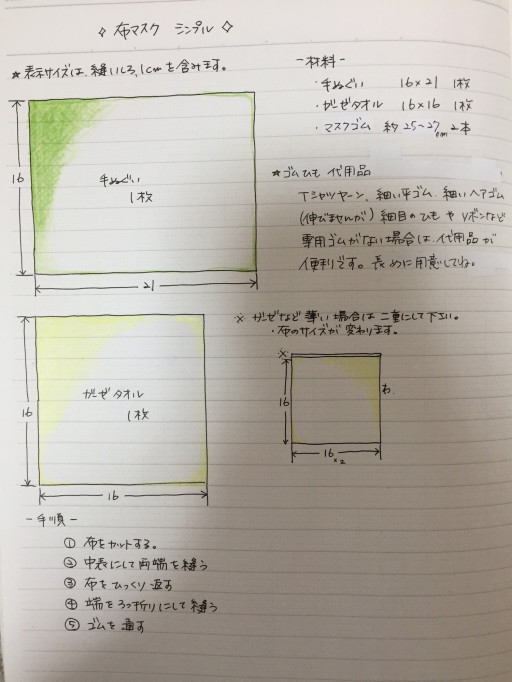 ◇ 布マスク シンプル ◇
★表示サイズは、縫いしろ1cmを含みます。
16
手ぬぐい
1枚
21
-材料-
・手ぬぐい 16×21 1枚
・ガーゼタオル 16×16 1枚
・マスクゴム 約25~27cm 2本
★ゴムひも 代用品
Tシャツヤーン、細い平ゴム、細いヘアゴム
(伸びませんが)細目のひもやリボンなど
専用ゴムがない場合は、代用品が
便利です。長めに用意してね。
16
ガーゼタオル
1枚
16
※ ガーゼなど薄い場合は二重にして下さい。
・布のサイズが変わります。
※
16
わ
16×2
-手順-
① 布をカットする。
② 中表にして両端を縫う
③ 布をひっくり返す
④ 端を3つ折りにして縫う
⑤ ゴムを通す